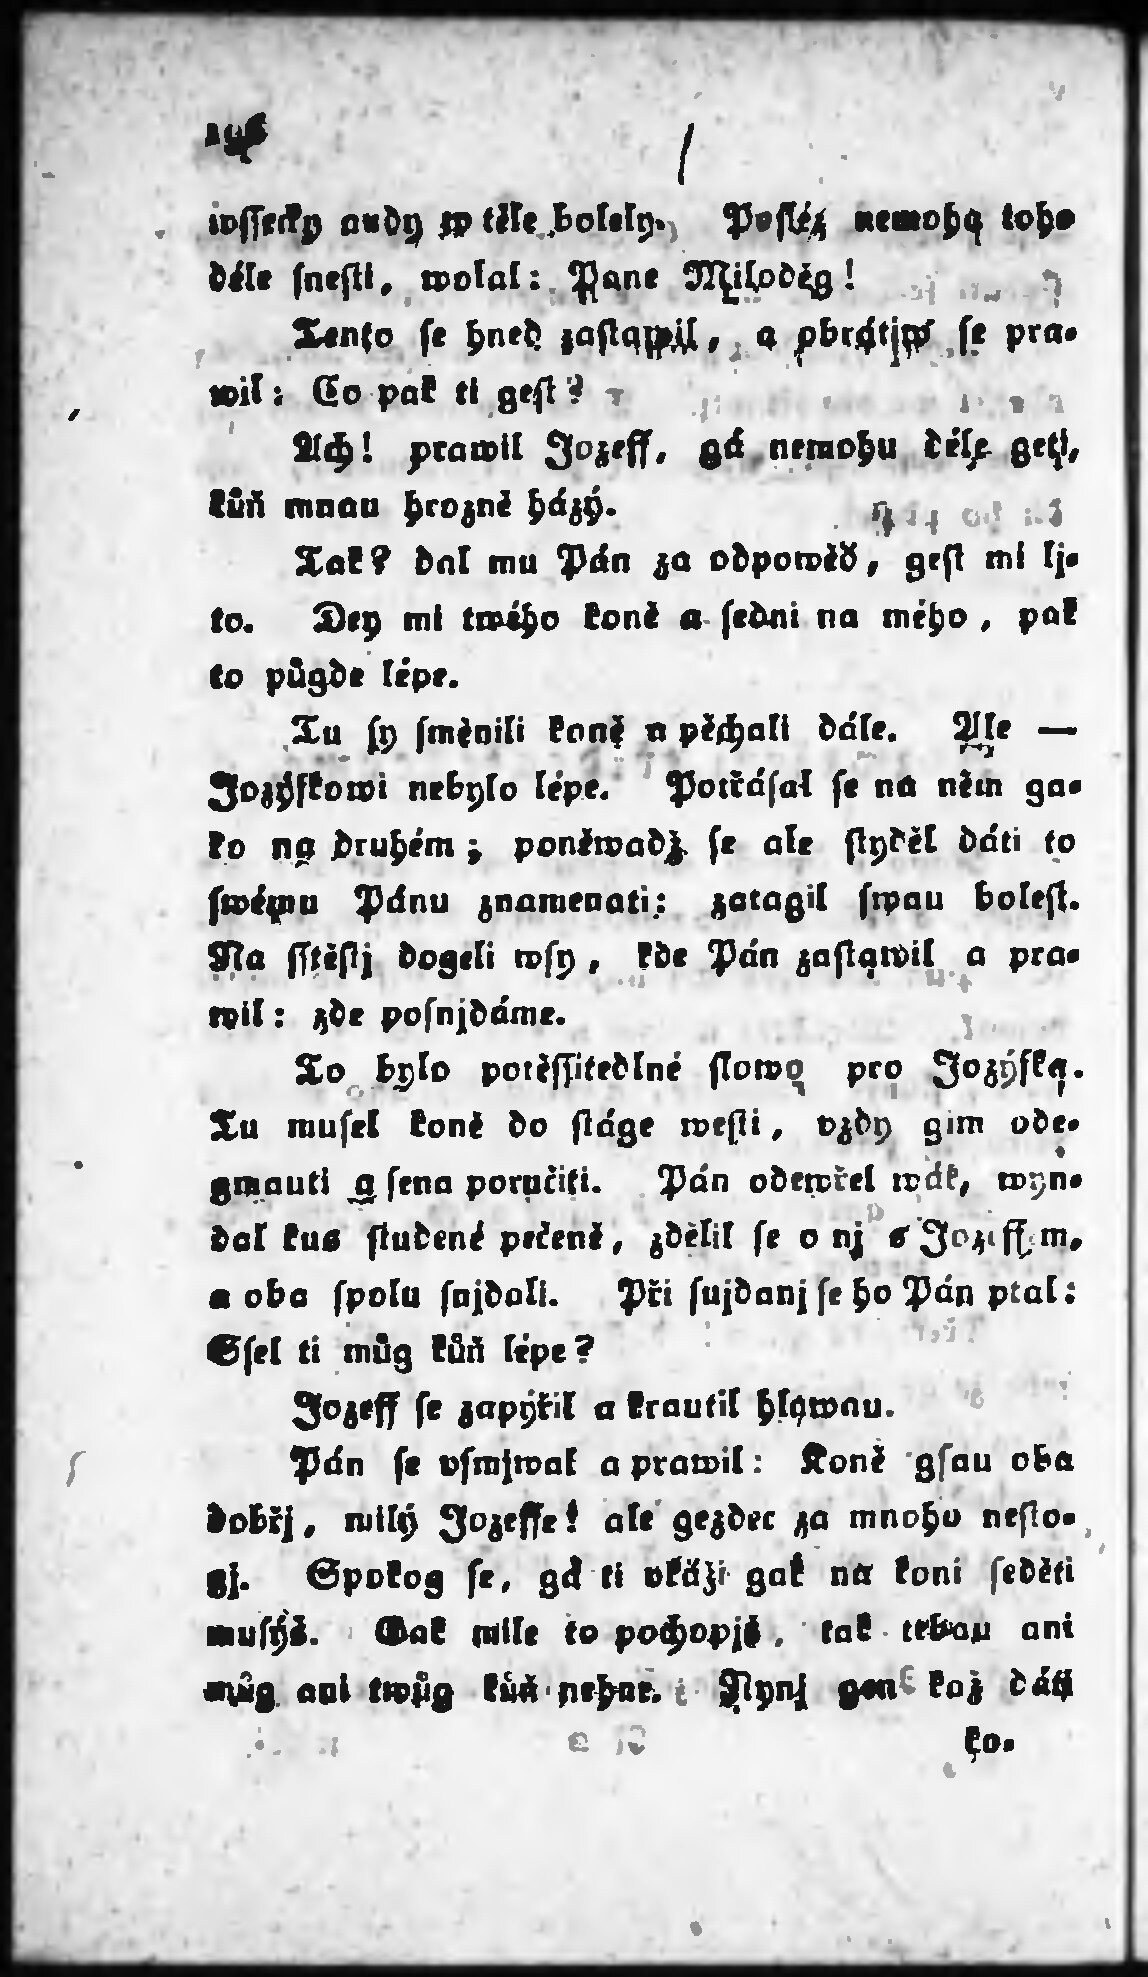 wssecky audy w těle bolely. Posléz nemoha toho
déle snesti, wolal: Pane Miloděg!
Tento se hned zastawil, a obrátjw se pra-
wil: Co pak ti gest?
Ach! prawil Jozeff, gá nemohu déle geti,
kůň mnau hrozně házý.
Tak? dal mu Pán za odpowěď, gest mi lj-
to. Dey mi twého koně a sedni na mého, pak
to půgde lépe.
Tu sy směnili koně a pěchali dále. Ale —
Jozýfkowi nebylo lépe. Potřásal se na něm ga-
ko na druhém; poněwadž se ale styděl dáti to
swému Pánu znamenati: zatagil swau bolest.
Na sstěstj dogeli wsy, kde Pán zastawil a pra-
wil: zde posnjdáme.
To bylo potěssitedlné slowo pro Jozýfka.
Tu musel koně do stáge westi, vzdy gim ode-
gmauti a sena poručiti. Pán odewřel wák, wyn-
dal kus studené pečeně, zdělil se o nj s Jozeffem,
a oba spolu snjdali. Při snjdanj se ho Pán ptal:
Ssel ti můg kůň lépe?
Jozeff se zapýřil a krautil hlawau.
Pán se vsmjwal a prawil: Koně gsau oba
dobřj, milý Jozeffe! ale gezdec za mnoho nesto-
gj. Spokog se, gá ti vkáži gak na koni seděti
musýš. Gak mile to pochopjš, tak tebau ani
můg ani twůg kůň nehne. Nynj gen kaž dáti
ko-